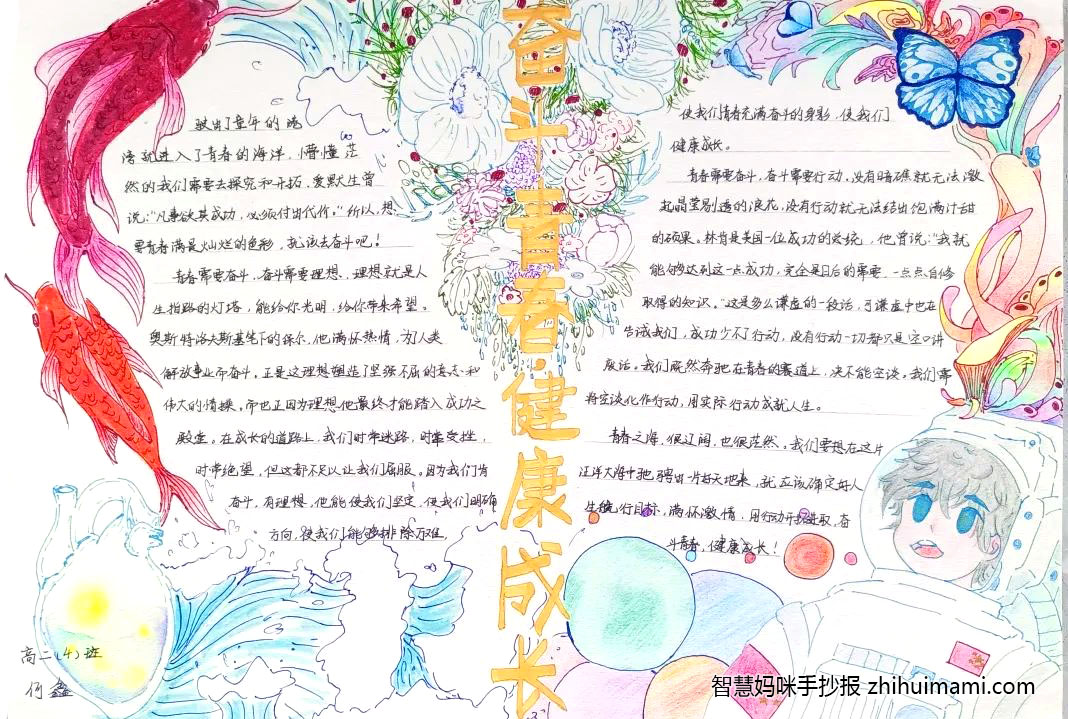 奋斗青春·健康成长
驶出了童年的港
湾就进入了青春的海洋，懵懂茫
然的我们需要去探究和开拓，爱默生曾
说："凡事欲其成功，必须付出代价。"所以，想
要青春满是灿烂的色彩，就该去奋斗吧！
青春需要奋斗，奋斗需要理想，理想就是人
生指路的灯塔，能给你光明，给你带来希望。
奥斯特洛夫斯基笔下的保尔，他满怀热情，为人类
解放事业而奋斗。正是这理想塑造了坚强不屈的意志和
伟大的情操。而也正因为理想他最终才能踏入成功之
殿堂。在成长的道路上，我们时常迷路，时常受挫，
时常绝望，但这都不足以让我们屈服。因为我们肯
奋斗，有理想，他能使我们坚定，使我们明确
方向，使我们能够排除万难，
使我们青春充满奋斗的身影，使我们
健康成长。
青春需要奋斗，奋斗需要行动，没有暗礁就无法激
起晶莹剔透的浪花，没有行动就无法结出饱满汁甜
的硕果。林肯是美国一位成功的总统，他曾说："我就
能够达到这一点成功，完全是日后的需要，一点点自修
取得的知识。"这是多么谦虚的一段话，可谦虚中也在
告诫我们，成功少不了行动，没有行动一切都只是空口讲
废话。我们既然奔驰在青春的赛道上，决不能空谈。我们需
将空谈化作行动，用实际行动成就人生。
青春之海，很辽阔，也很茫然。我们要想在这片
汪洋大海中驰骋出一片好天地来，就应该确定好人
生行目标，满怀激情，用行动开拓进取，奋
斗青春，健康成长！
高二（4）班
何鑫
智慧妈咪手抄报 zhihuimami.com